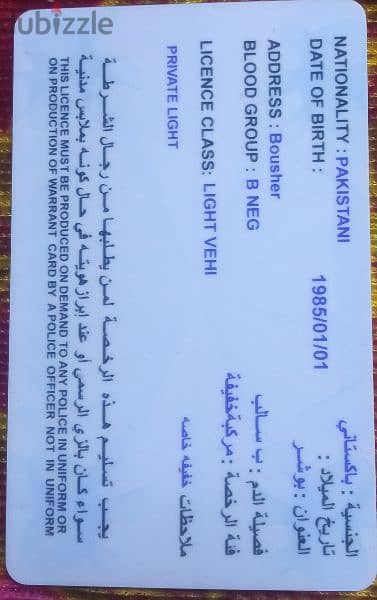 dubizzle
NATIONALITY : PAKISTANI
الجنسية : باكستاني
DATE OF BIRTH :
1985/01/01
تاريخ الميلاد :
ADDRESS : Bousher
العنوان : بوشر
BLOOD GROUP : B NEG
فصيلة الدم : ب سالب
LICENCE CLASS: LIGHT VEHI
فئة الرخصة : مركبة خفيفة
PRIVATE LIGHT
ملاحظات خفيفه خاصه
يجب تسليم هذه الرخصة لمن يطلبها من رجال الشرطة
سواء كان بالزي الرسمي أو عند إبراز هويته في حال كونه بملابس مدنية
THIS LICENCE MUST BE PRODUCED ON DEMAND TO ANY POLICE IN UNIFORM OR
ON PRODUCTION OF WARRANT CARD BY A POLICE OFFICER NOT IN UNIFORM